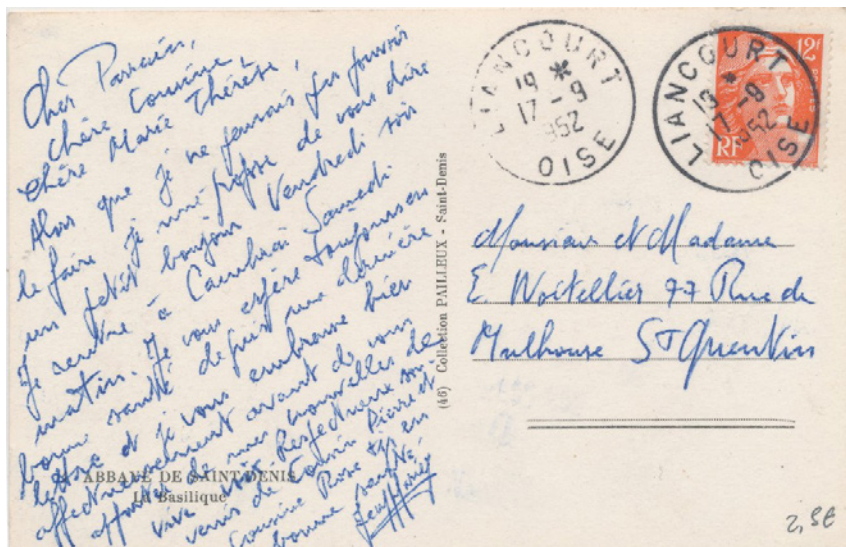 Cher Parrain,
Chère Cousine,
Chère Marie Thérèse,
Alors que je ne pensais pas pouvoir
le faire je me propose de vous dire
un petit bonjour Vendredi soir
Je rentre à Cambrai Samedi
matin. Je vous espère toujours en
bonne santé depuis ma dernière
lettre et je vous embrasse bien
affectueusement avant de vous
apporter de mes nouvelles de
vive voix. Respectueux sou
venir de Cousin Pierre et
Cousine Rose en
bonne santé,
ABBAYE DE SAINT-DENIS
La Basilique
(46) Collection PAILLEUX - Saint-Denis
LIANCOURT
19 *
17 - 9
1952
OISE
LIANCOURT
19 *
17 - 9
1952
OISE
12f
RF
Monsieur et Madame
E. Woitellier 77 Rue de
Mulhouse St Quentin
2,5€